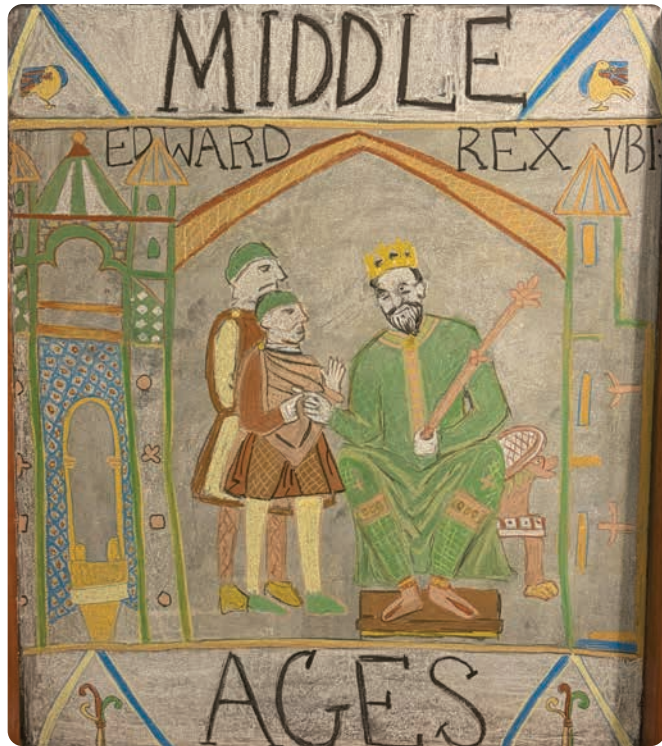 MIDDLE
EDWARD REX VBI:
AGES